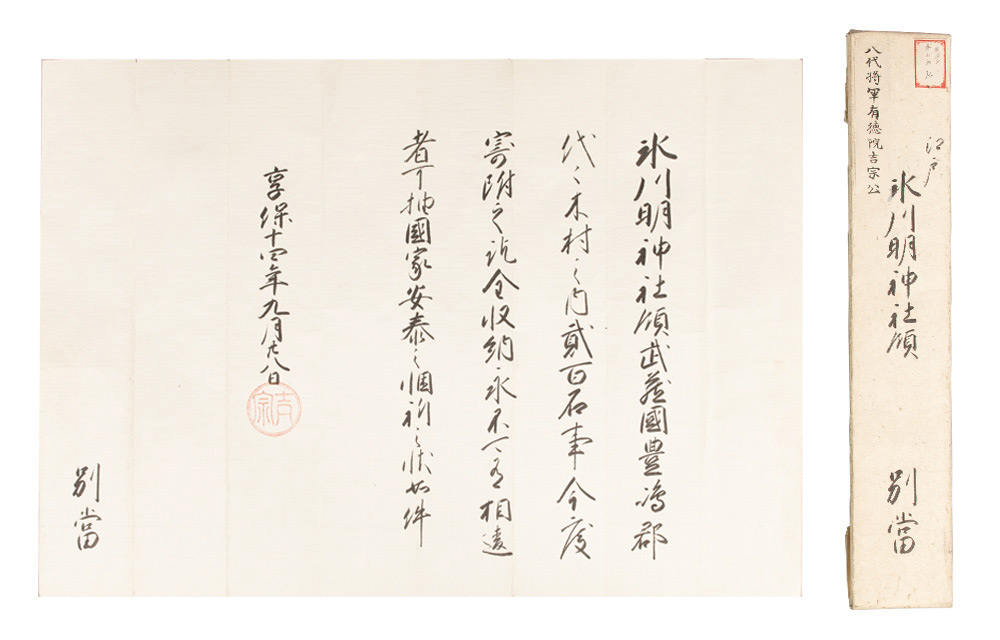 氷川明神社領武蔵國豊嶋郡
代々木村之内貳百石事今度
寄附之訖全収納永不可有相違
者可抽國家安泰之懇祈之状如件
享保十四年九月廿八日
吉宗
別當
八代将軍有徳院吉宗公
江戸
氷川明神社領
別當